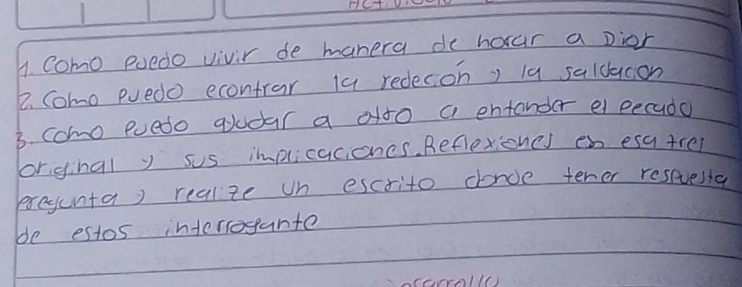 1. Como puedo vivir de manera de horar a Dior
2. Como puedo econtrar la redecón y la saldacon
3. como puedo ayudar a otro a entender el pecado
original y sus implicaciones. Reflexiones en esa tres
pregunta y realize un escrito donde tener respuesta
de estos interrogante